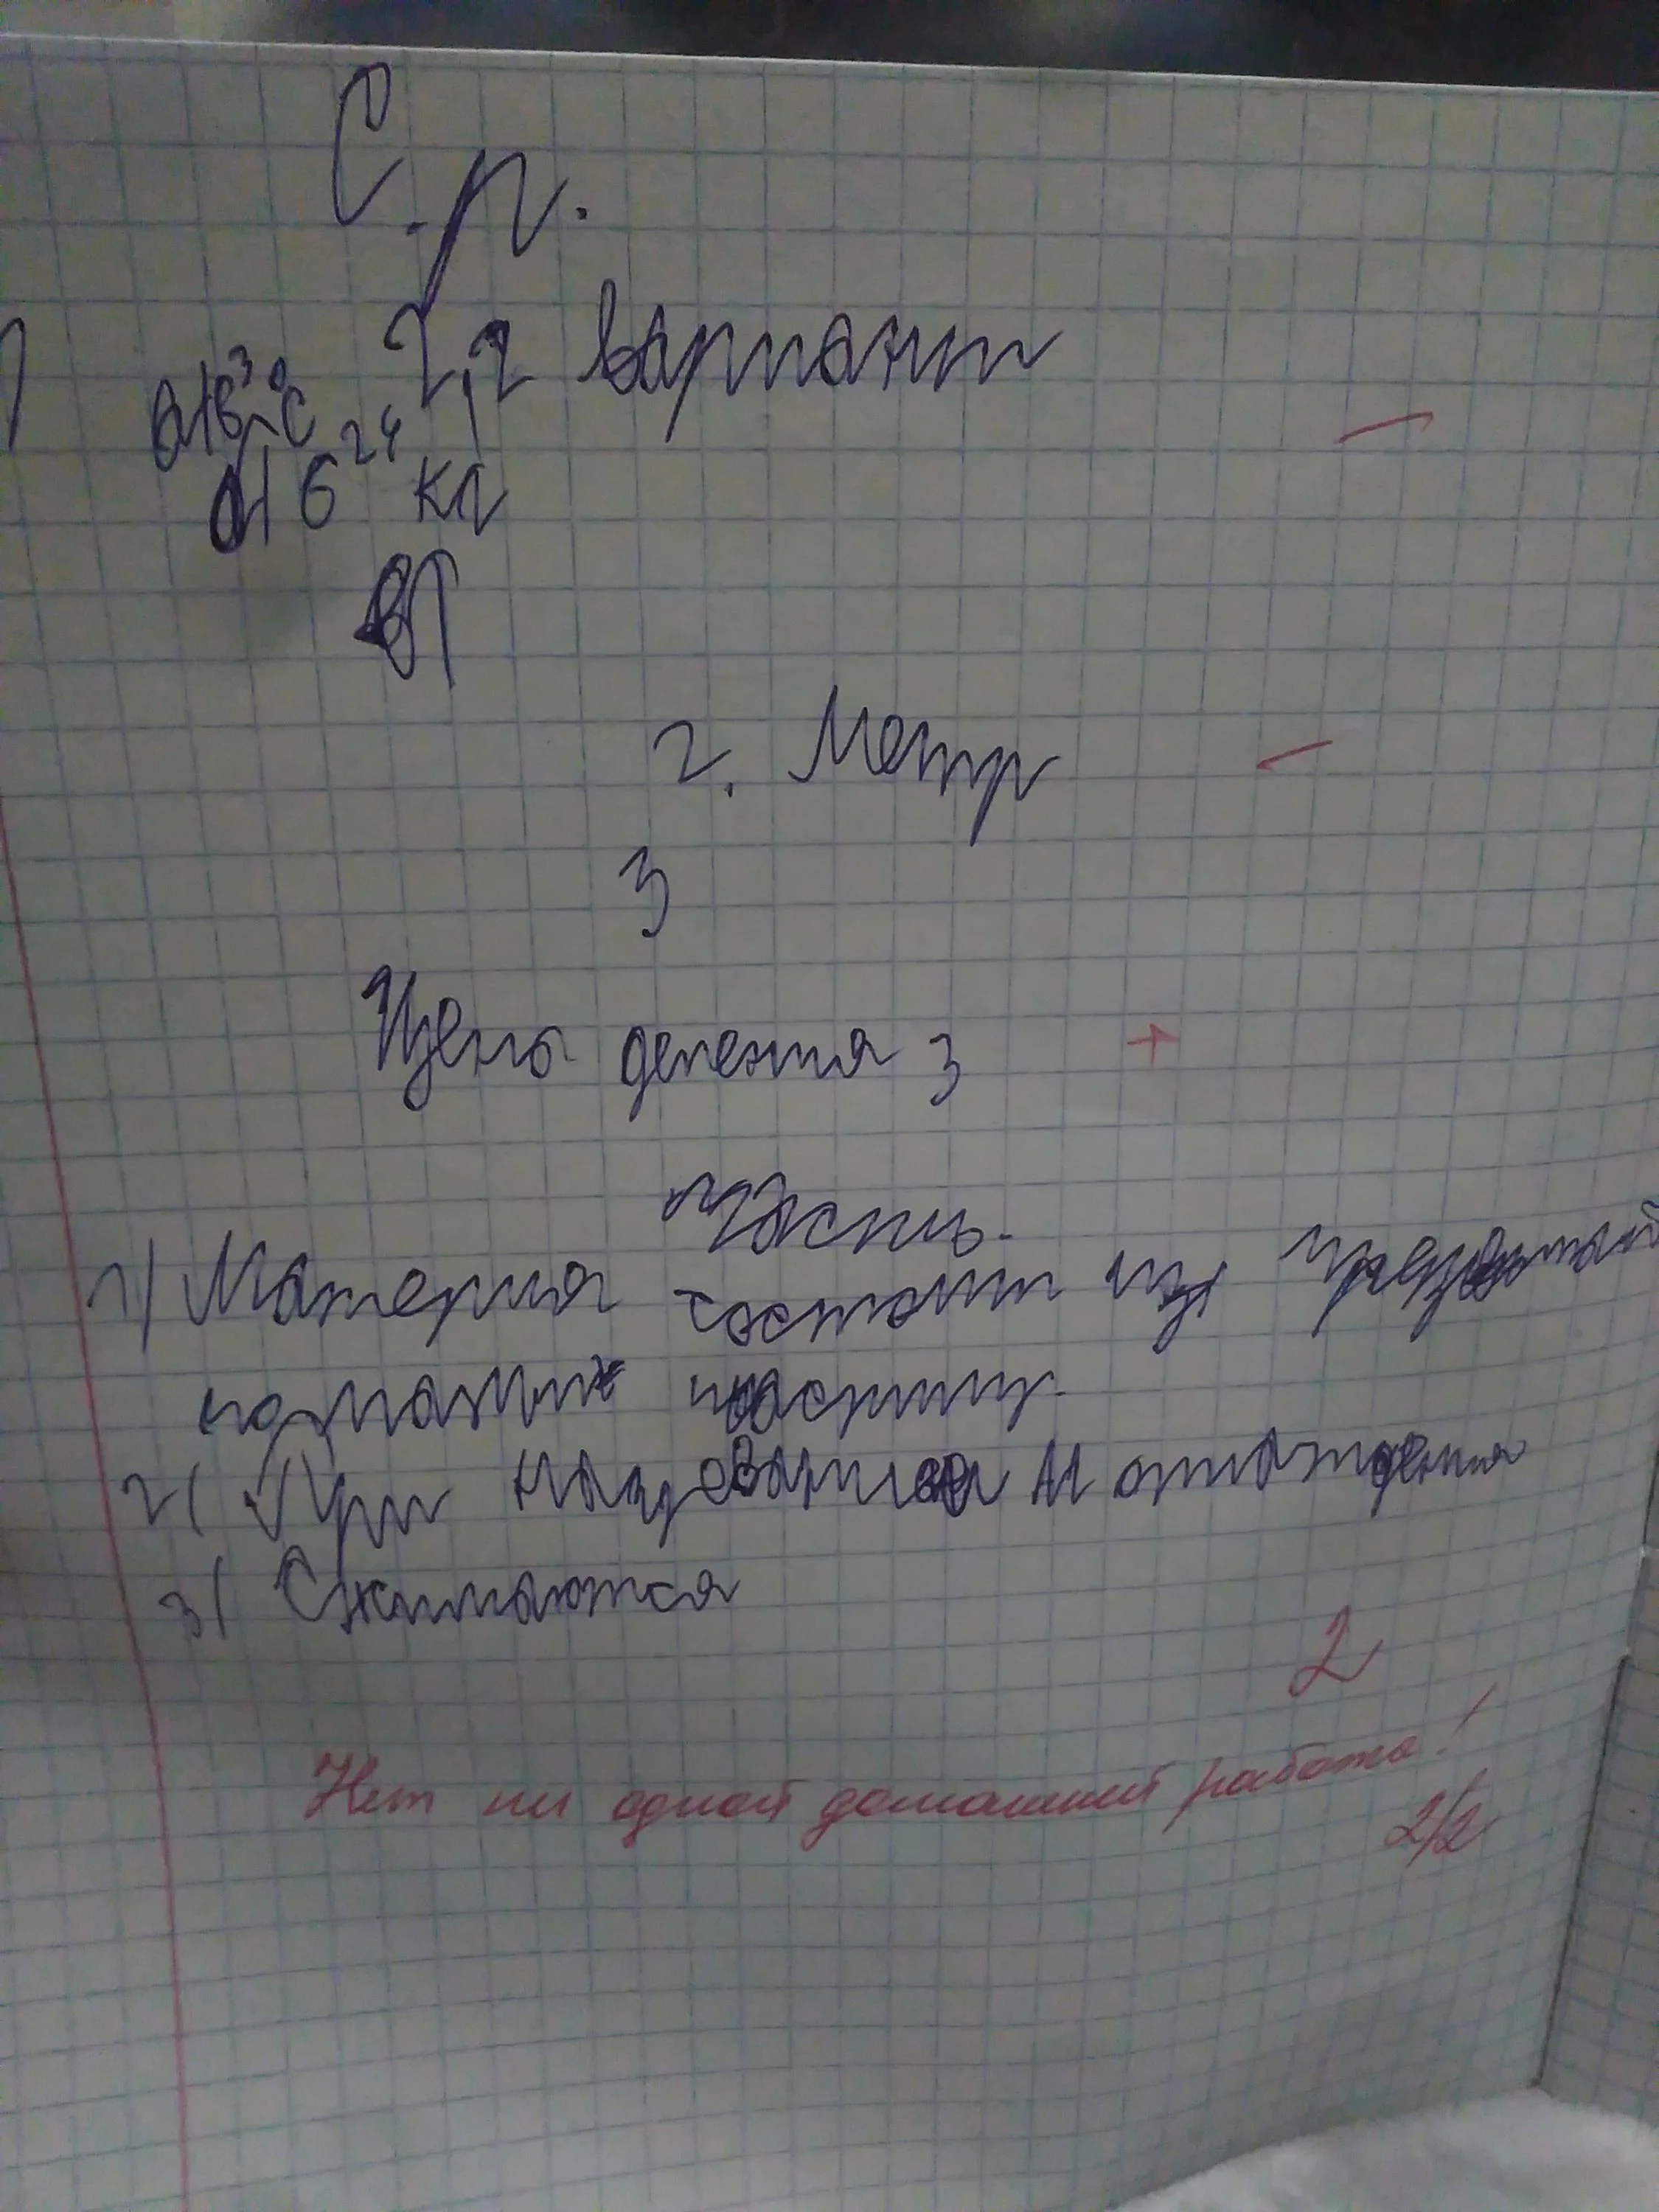 С.р.
2 вариант
а) 6²⁴ кг
в)
2. Метр
3
Цена деления 3
+
Часть
1) Материя состоит из
2) При нагревание и отхаждения
3) Сжимаются
2
Нет ни одной домашней работы!
2/2